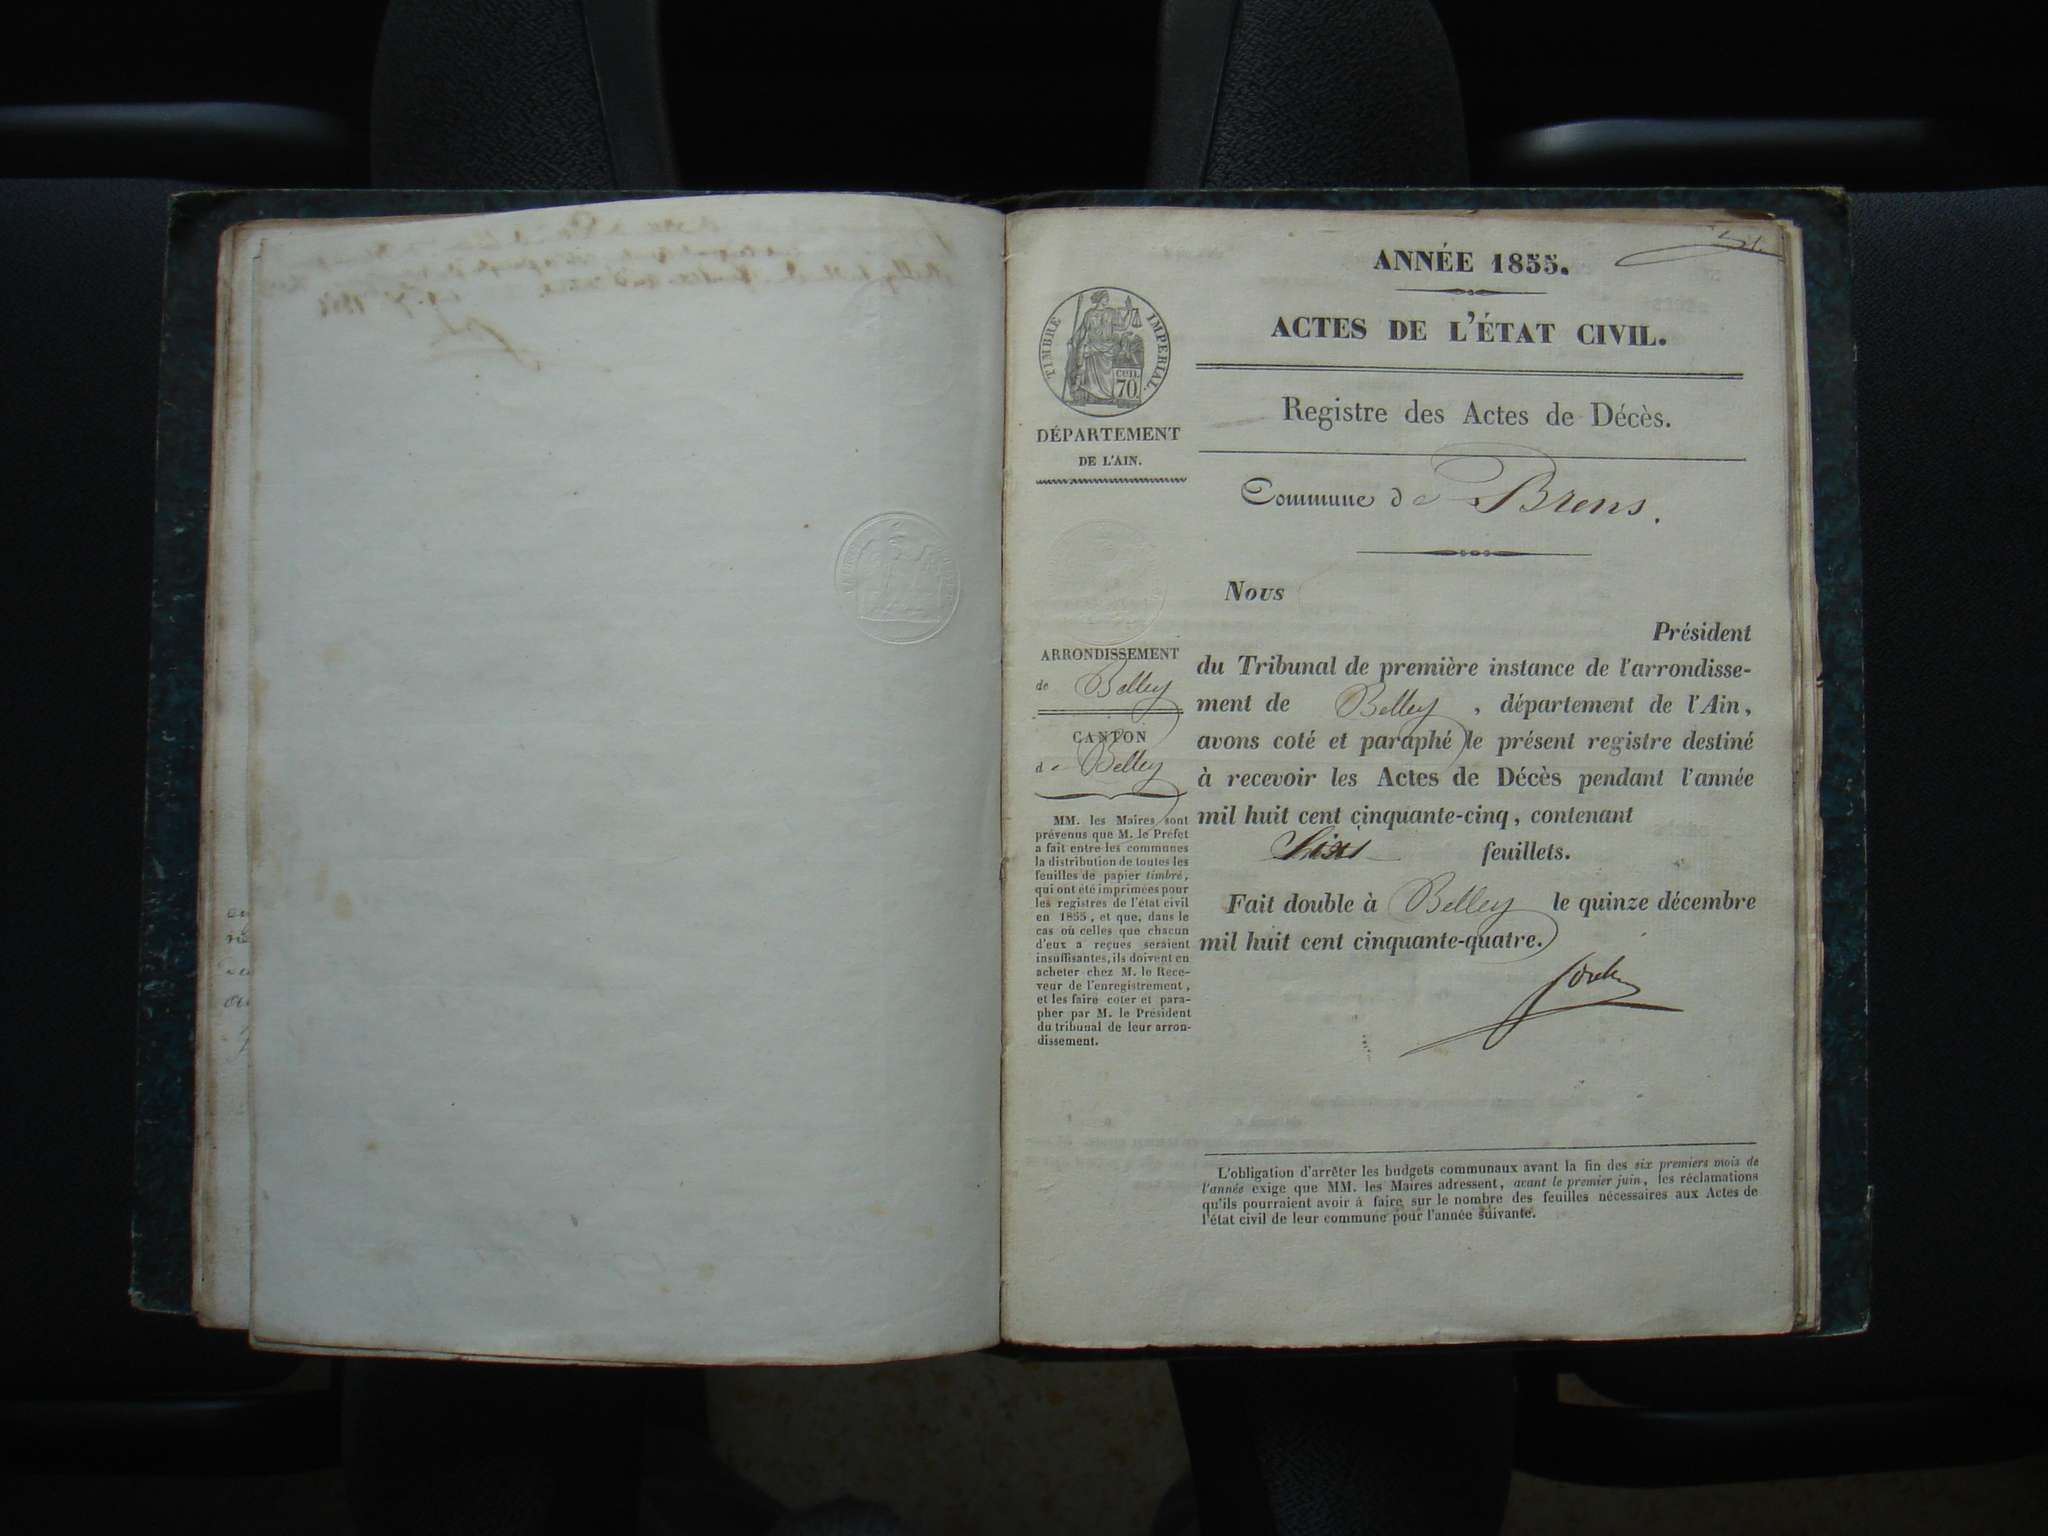 ANNÉE 1855.
ACTES DE L'ÉTAT CIVIL.
TIMBRE IMPERIAL.
CEN.
70.
DÉPARTEMENT
DE L'AIN.
Registre des Actes de Décès.
Commune de Brens.
Nous
Président
du Tribunal de première instance de l'arrondisse-
ment de Belley, département de l'Ain,
avons coté et paraphé le présent registre destiné
à recevoir les Actes de Décès pendant l'année
mil huit cent cinquante-cinq, contenant
feuillets.
Fait double à Belley le quinze décembre
mil huit cent cinquante-quatre.
ARRONDISSEMENT
de Belley
CANTON
de Belley
MM. les Maires sont
prévenus que M. le Préfet
a fait entre les communes
la distribution de toutes les
feuilles de papier timbré,
qui ont été imprimées pour
les registres de l'état civil
en 1855, et que, dans le
cas où celles que chacun
d'eux a reçues seraient
insuffisantes, ils doivent en
acheter chez M. le Rece-
veur de l'enregistrement,
et les faire coter et para-
pher par M. le Président
du tribunal de leur arron-
dissement.
L'obligation d'arrêter les budgets communaux avant la fin des six premiers mois de
l'année exige que MM. les Maires adressent, avant le premier juin, les réclamations
qu'ils pourraient avoir à faire sur le nombre des feuilles nécessaires aux Actes de
l'état civil de leur commune pour l'année suivante.